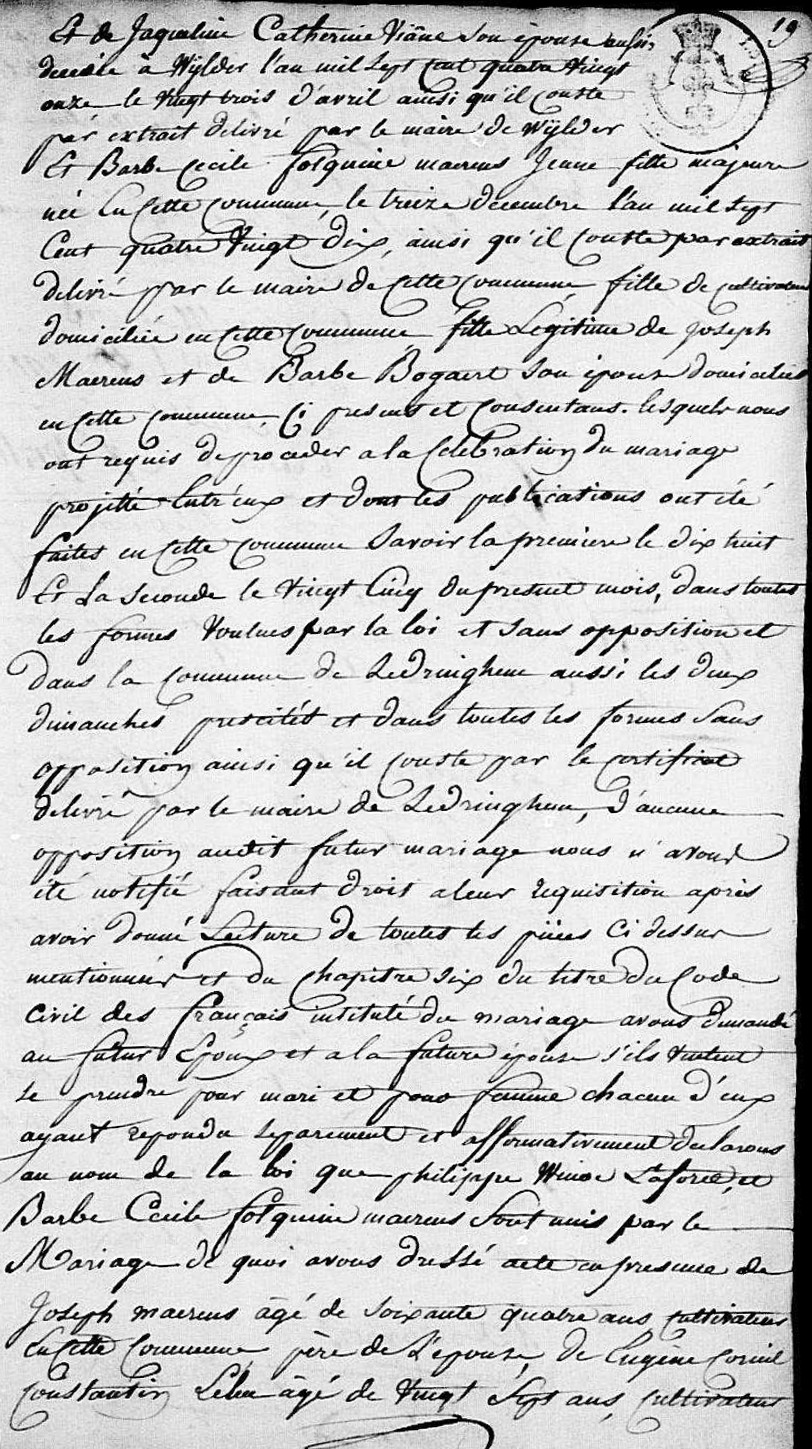 19
Et de Jaqueline Catherine Viâne son épouse aussi
decedée à Wÿlder l'an mil sept cent quatre vingt
onze le vingt trois d'avril ainsi qu'il conste
par extrait delivré par le maire de Wÿlder
Et Barbe Cecile folquine maerens Jeune fille majeure
née en cette commune le treize decembre l'an mil sept
Cent quatre vingt dix, ainsi qu'il conste par extrait
delivré par le maire de cette commune fille de cultivateur
domiciliée en cette commune fille Legitime de joseph
Maerens et de Barbe Bogaert son épouse domiciliés
en cette commune, Ci presens et consentans. lesquels nous
ont requis de proceder a la Celebration du mariage
projetté entr'eux et dont les publications ont été
faites en cette commune Savoir la premiere le dix huit
Et la seconde le vingt cinq du present mois, dans toutes
les formes voulues par la loi et sans opposition et
dans la commune de Ledringhem aussi les deux
dimanches prescités et dans toutes les formes sans
opposition ainsi qu'il conste par le certificat
delivré par le maire de Ledringhem, d'aucune
opposition audit futur mariage nous n'avons
été notifié faisant droit a leur requisition après
avoir donné Lecture de toutes les pièces ci dessus
mentionnées et du chapitre six du titre du Code
Civil des français intitulé du mariage avons demandé
au futur Epoux et a la future épouse s'ils veulent
se prendre pour mari et pour femme chacun d'eux
ayant repondu separement et affirmativement declarons
au nom de la loi que philippe Winoc Laforce, et
Barbe Cecile folquine maerens sont unis par le
Mariage de quoi avons dressé acte en presence de
Joseph maerens âgé de soixante quatre ans cultivateur
en cette Commune père de L'epouse, de Eugène Cornil
Constantin âgé de vingt sept ans, cultivateur